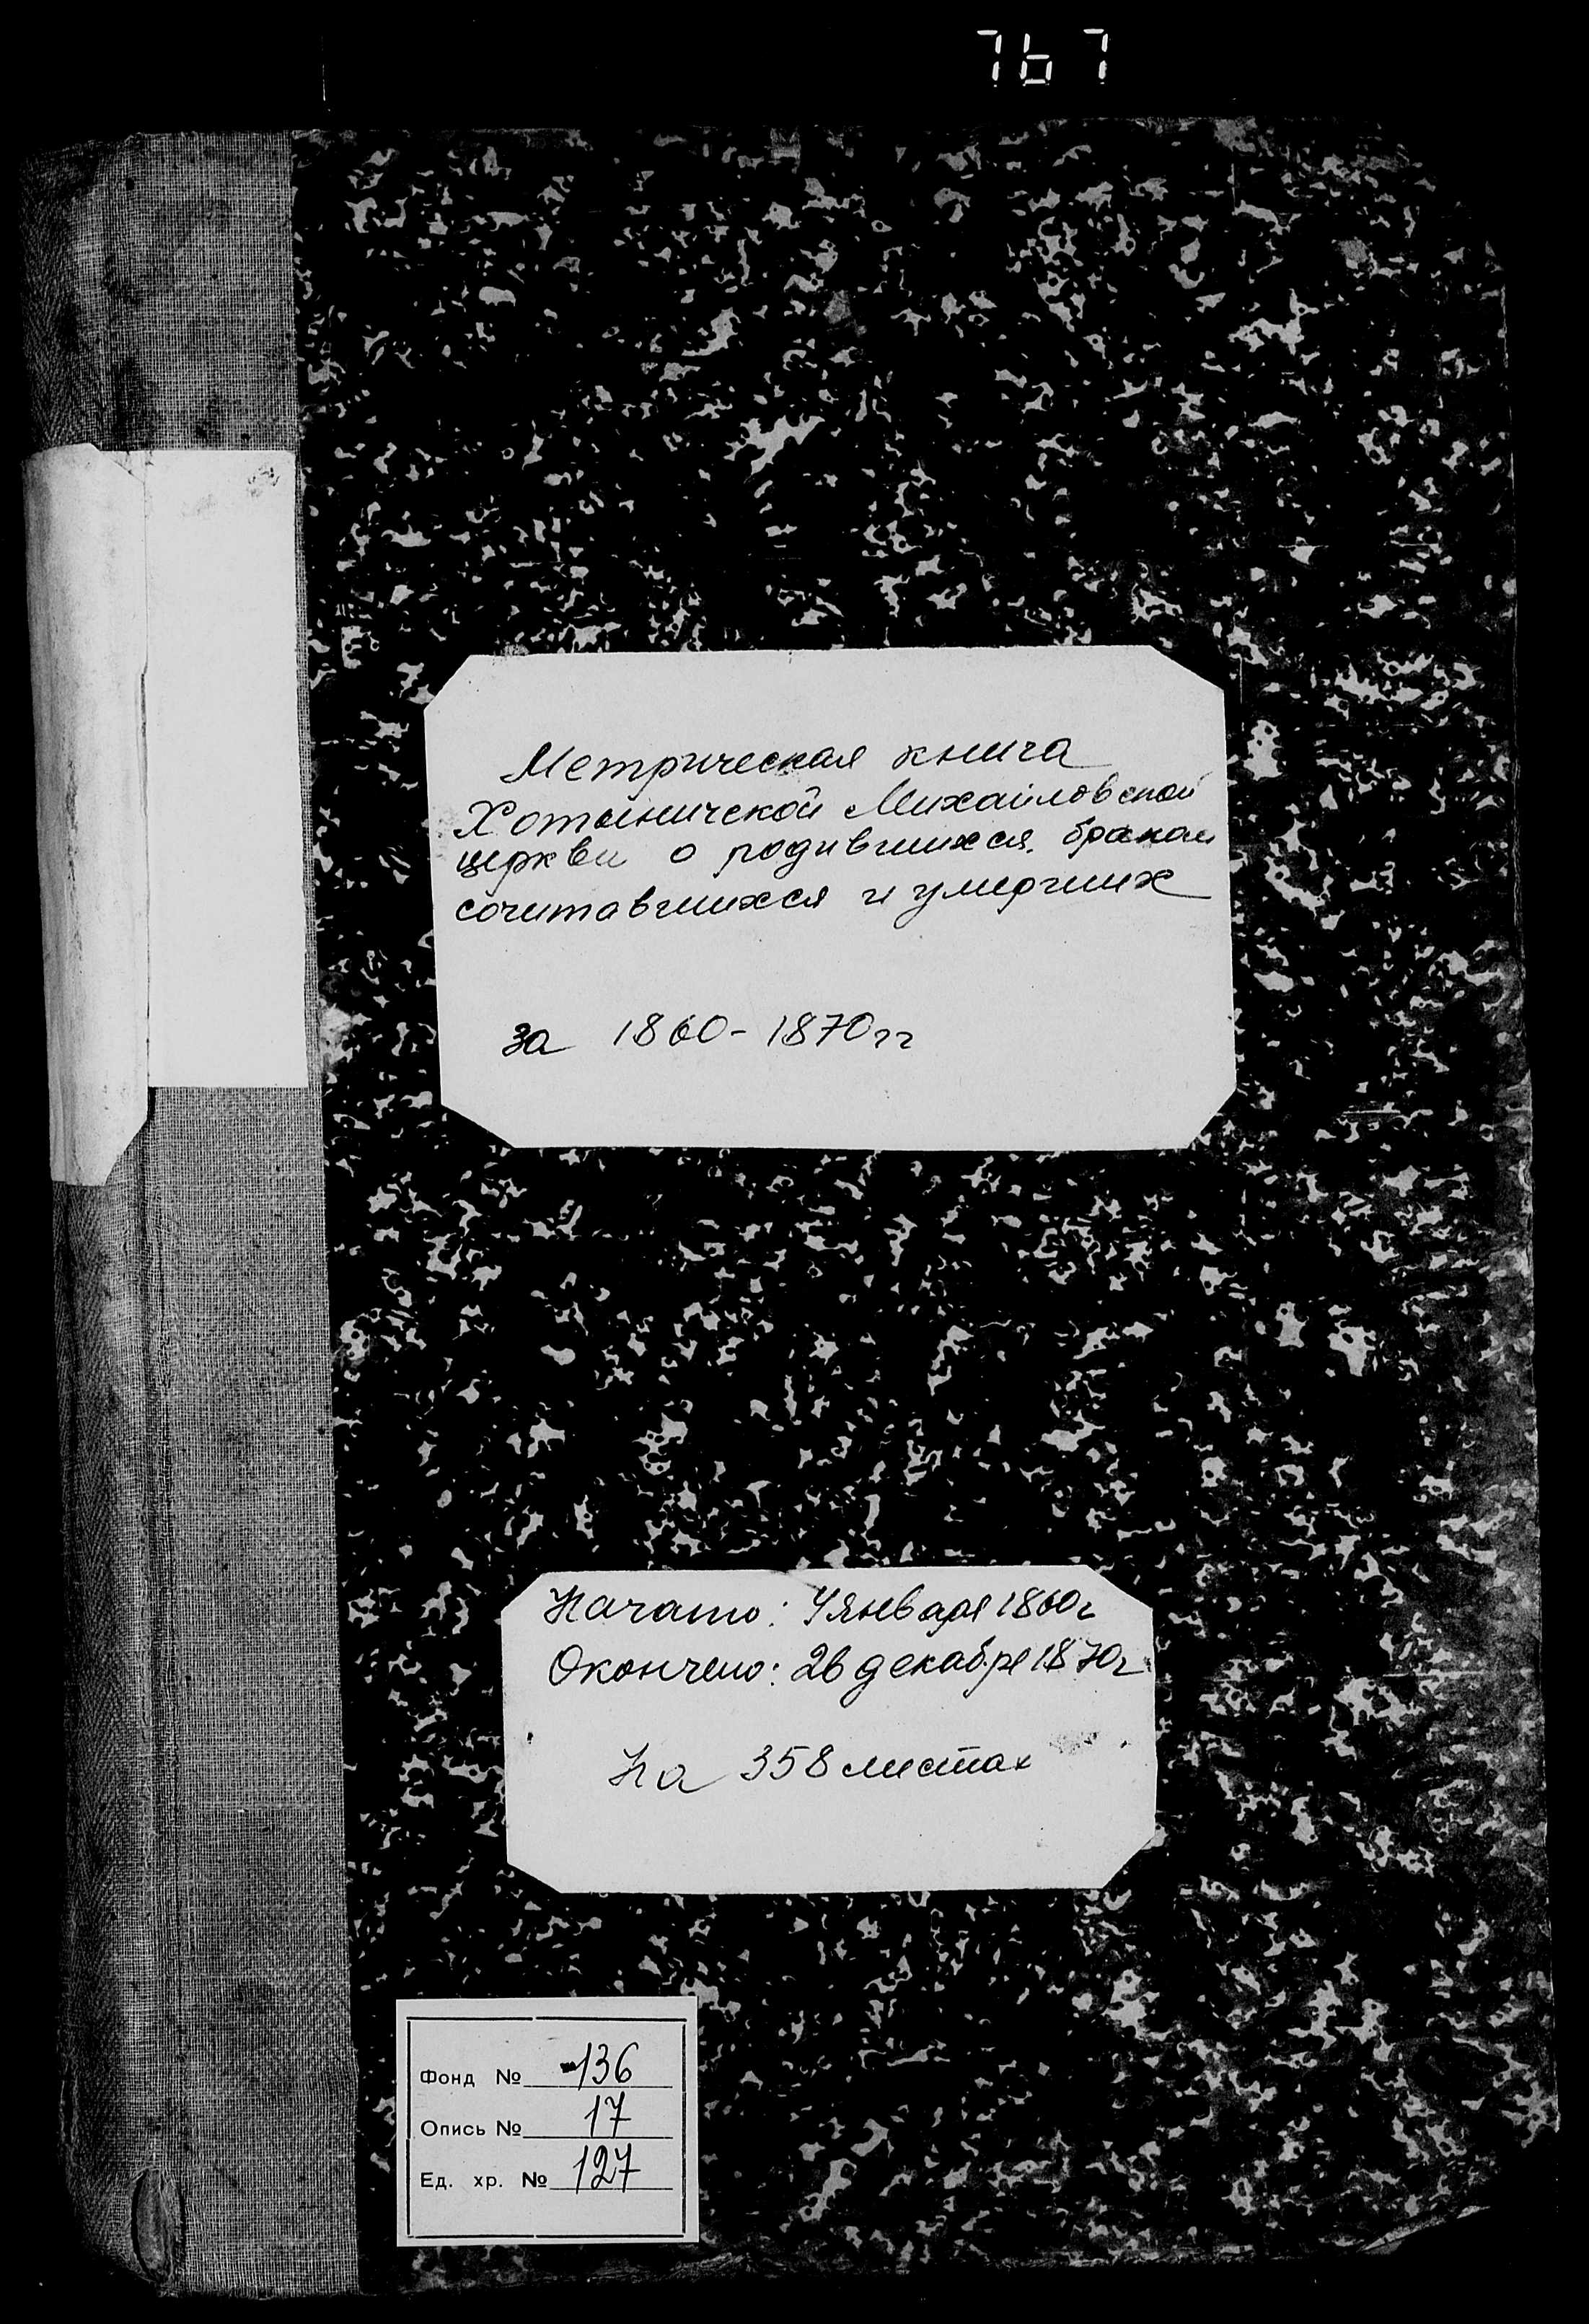 767
Метрическая книга
Хотыничской Михайловской
церкви о родившихся, браком
сочитавшихся и умерших
за 1860-1870гг
Начато: 4 января 1860г
Окончено: 26 декабря 1870г.
На 358 листах
Фонд № 136
Опись № 17
Ед. хр. № 127